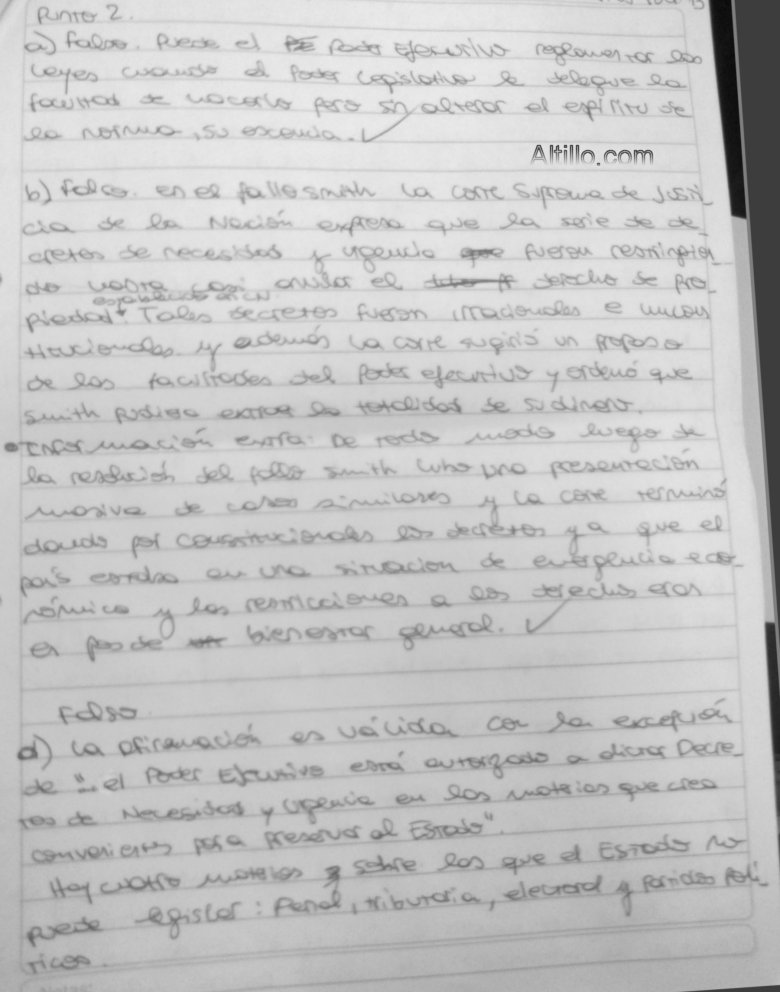 Punto 2.
a) Falso. Puede el Poder Ejecutivo reglamentar las
leyes cuando el Poder Legislativo le delegue la
facultad de hacerlo pero sin alterar el espíritu de
la norma, su escencia.
Altillo.com
b) Falso. en el fallo smith la corte Suprema de Justi-
cia de la Nación expresa que la serie de de-
cretos de necesidad y urgencia fueron
do hasta casi anular el derecho de pro-
establecido en CN
piedad. Tales decretos fueron irracionales e incons
titucionales y además la corte sugirió un
de las facultades del Poder ejecutivo y ordenó que
smith pudiera extraer la totalidad de su dinero.
• Información extra: De todo modo luego de
la resolución del fallo smith hubo una presentación
masiva de casos similares y la corte terminó
dando por constitucionales los decretos ya que el
país estaba en una situación de emergencia eco-
nómica y las restricciones a los derechos eran
en pos de bienestar general.
Falso
d) La afirmación es válida con la excepción
de "... el Poder Ejecutivo está autorizado a dictar Decre-
tos de Necesidad y Urgencia en las materias que crea
convenientes para preservar al Estado".
Hay cuatro materias sobre las que el Estado no
puede legislar: Penal, tributaria, electoral y Partidos Polí-
ticos.